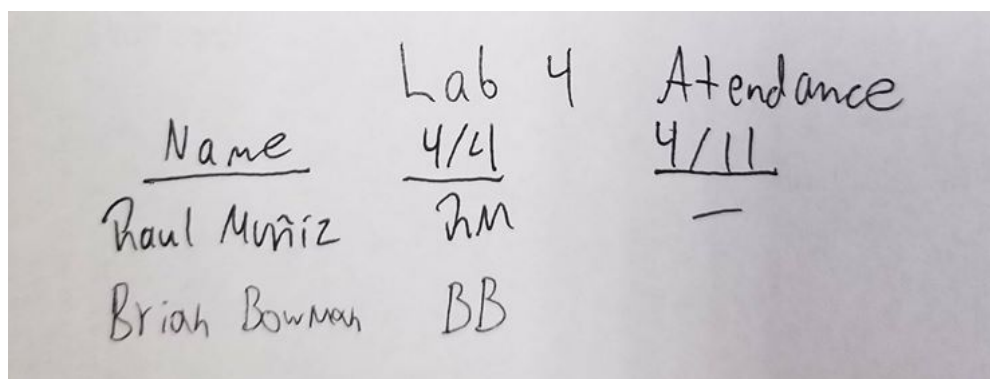 Lab 4 Atendance
Name 4/4 4/11
Raul Muñiz RM —
Brian Bowman BB